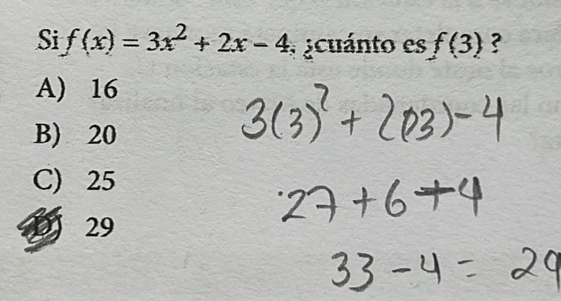 Si f(x) = 3x² + 2x – 4, ¿cuánto es f(3) ?
A) 16
B) 20
C) 25
D) 29
3(3)² + 2(3) – 4
27 + 6 + 4
33 – 4 = 29